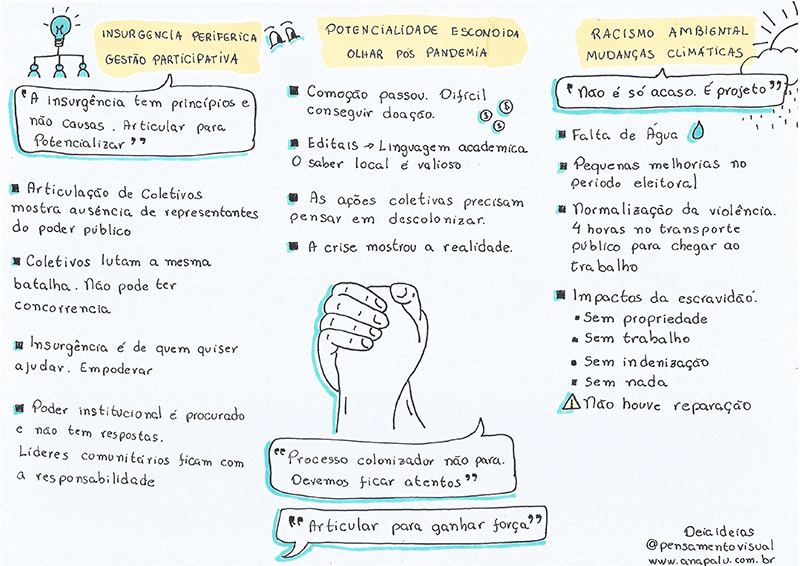 INSURGENCIA PERIFERICA
GESTÃO PARTICIPATIVA
"A insurgência tem princípios e
não causas. Articular para
Potencializar"
Articulação de Coletivos
mostra ausência de representantes
do poder público
Coletivos lutam a mesma
batalha. Não pode ter
concorrencia
Insurgência é de quem quiser
ajudar. Empoderar
Poder institucional é procurado
e não tem respostas.
Líderes comunitários ficam com
a responsabilidade
POTENCIALIDADE ESCONDIDA
OLHAR PÓS PANDEMIA
Comoção passou. Difícil
conseguir doação.
$ $ $
Editais → Linguagem academica
O saber local é valioso
As ações coletivas precisam
pensar em descolonizar.
A crise mostrou a realidade.
"Processo colonizador não para.
Devemos ficar atentos"
"Articular para ganhar força"
RACISMO AMBIENTAL
MUDANÇAS CLIMÁTICAS
"Não é só acaso. É projeto"
Falta de Água
Pequenas melhorias no
periodo eleitoral
Normalização da violência.
4 horas no transporte
público para chegar ao
trabalho
Impactos da escravidão:
Sem propriedade
Sem trabalho
Sem indenização
Sem nada
Não houve reparação
Deia Ideias
@pensamentovisual
www.anapalu.com.br